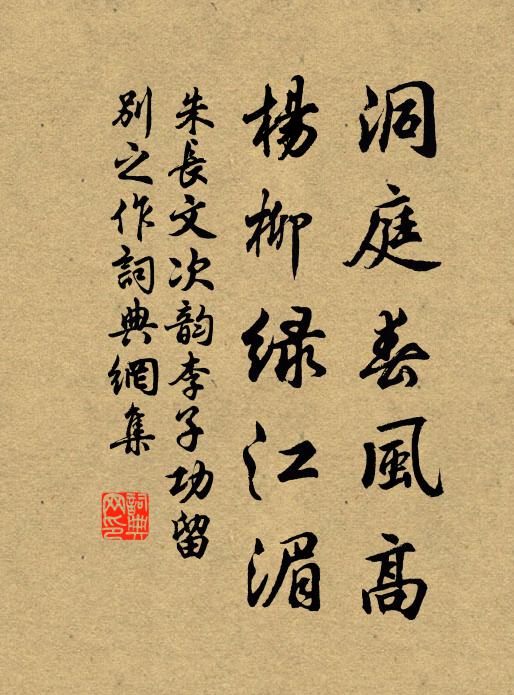 洞庭春風高
楊柳綠江湄
朱長文次韵李子功留
別之作詞典網集
詞典
网印